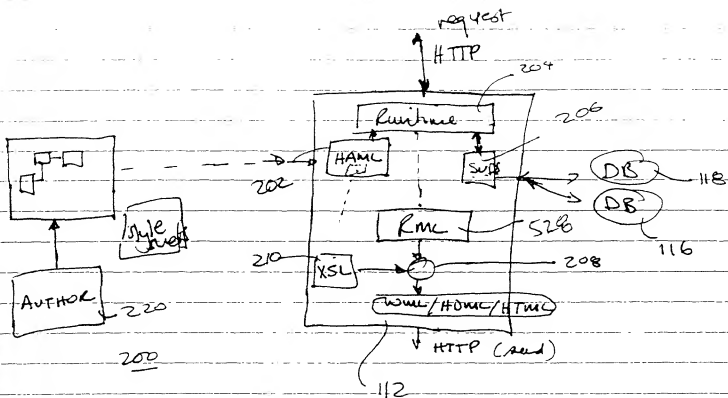 request
HTTP
204
Runtime
206
202
HAML
SVCS
DB
118
DB
116
RML
528
style
sheets
210
XSL
208
AUTHOR
220
WML/HDML/HTML
200
HTTP (send)
112